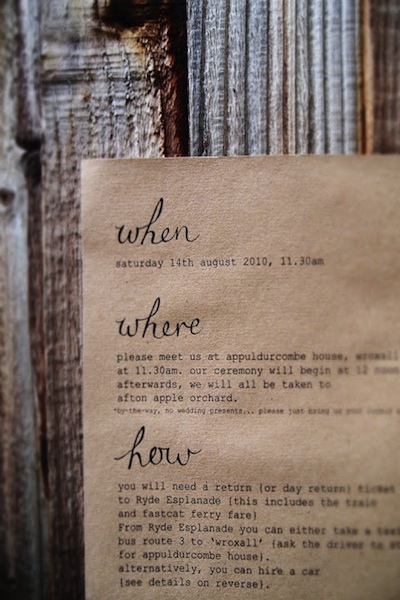 when
saturday 14th august 2010, 11.30am
where
please meet us at appuldurcombe house, wroxall
at 11.30am. our ceremony will begin at 12 noon
afterwards, we will all be taken to
afton apple orchard.
*by-the-way, no wedding presents... please just bring us your
how
you will need a return (or day return) ticket
to Ryde Esplanade (this includes the train
and fastcat ferry fare)
From Ryde Esplanade you can either take a taxi
bus route 3 to 'wroxall' (ask the driver to
for appuldurcombe house).
alternatively, you can hire a car
(see details on reverse).